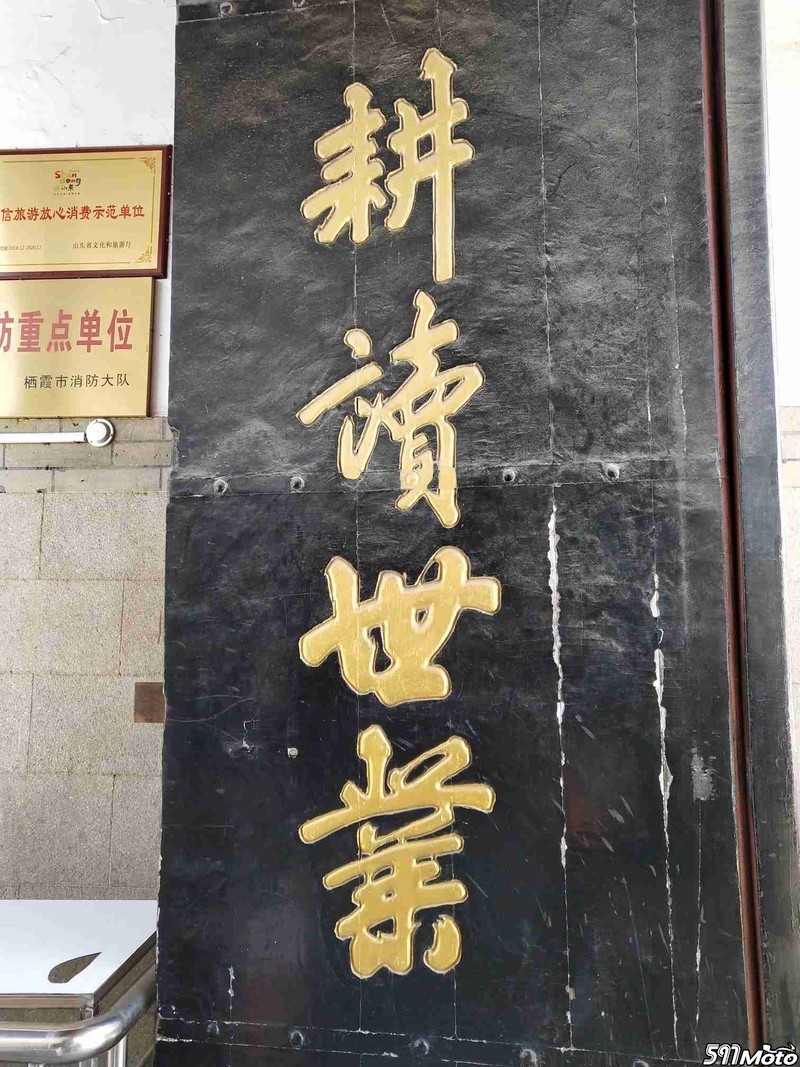 耕讀世業
Shandong
山东
信旅游放心消费示范单位
2018.12-2020.12
山东省文化和旅游厅
防重点单位
栖霞市消防大队
591Moto